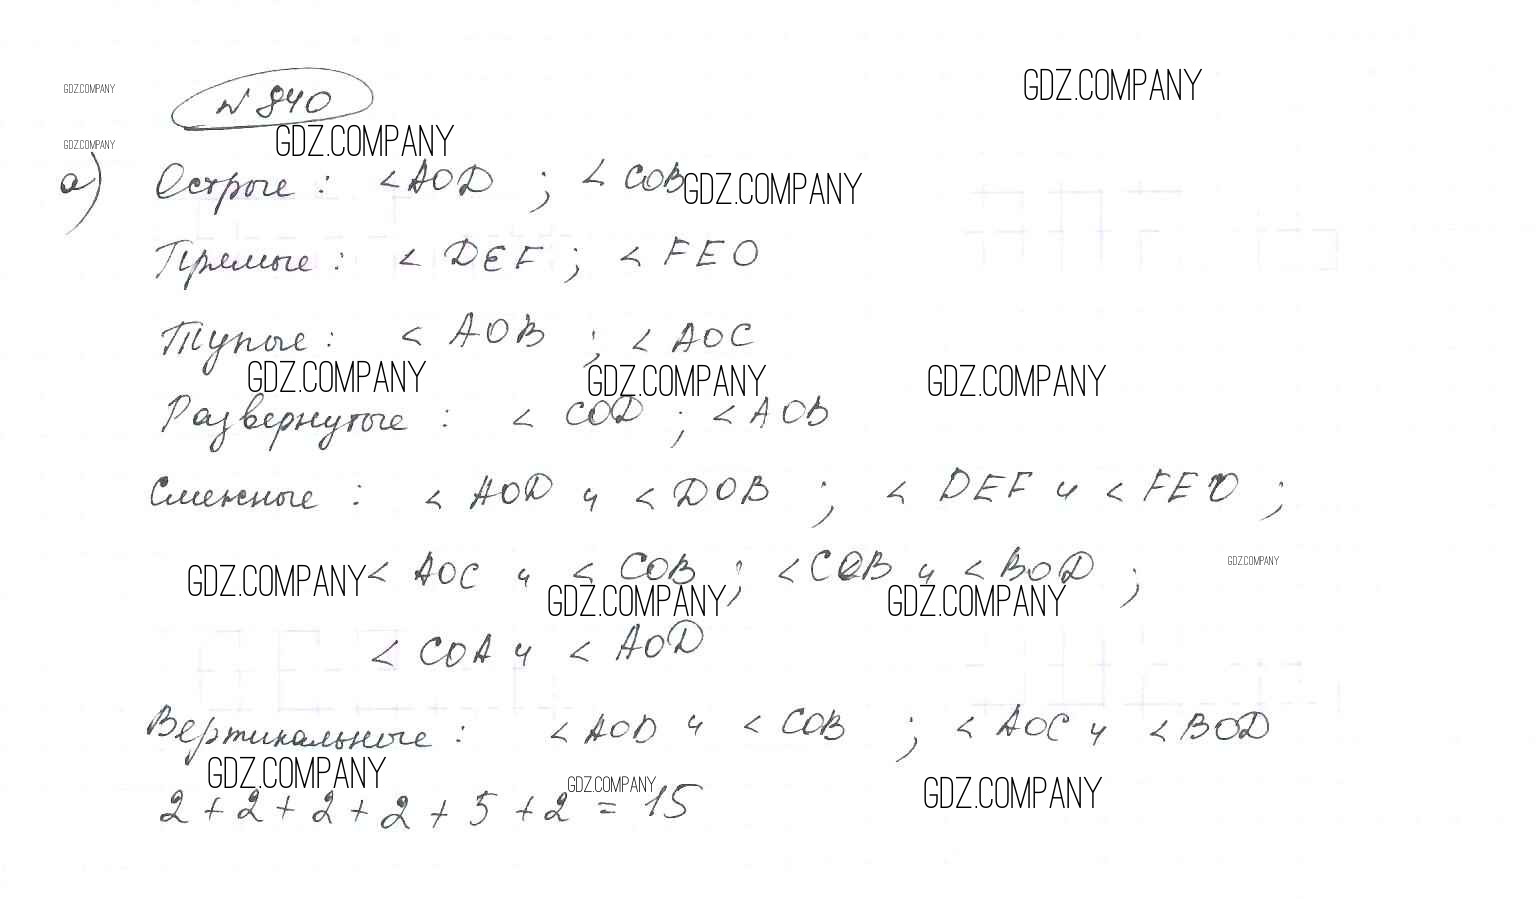 GDZ.COMPANY
GDZ.COMPANY
№ 840
GDZ.COMPANY
GDZ.COMPANY
а) Острые : <AOD ; < COB
GDZ.COMPANY
Прямые : < DEF ; < FEO
Тупые : < AOB ; < AOC
GDZ.COMPANY GDZ.COMPANY GDZ.COMPANY
Развернутые : < COD ; < AOB
Смежные : < AOD и < DOB ; < DEF и < FEO ;
GDZ.COMPANY
< AOC и < COB ; < COB и < BOD ;
GDZ.COMPANY GDZ.COMPANY GDZ.COMPANY
< COA и < AOD
Вертикальные : < AOD и < COB ; < AOC и < BOD
GDZ.COMPANY GDZ.COMPANY GDZ.COMPANY
2 + 2 + 2 + 2 + 5 + 2 = 15